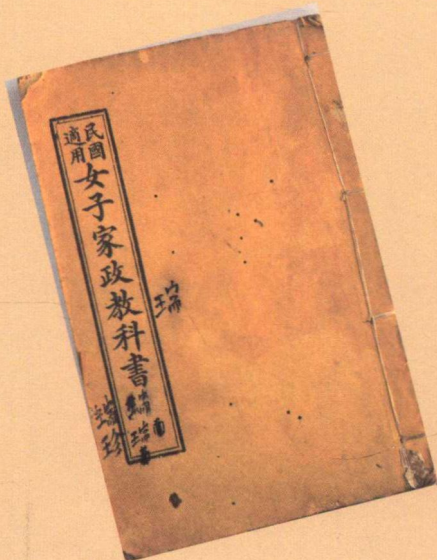 民國
適用
女子家政教科書
瑞
瑞
珍